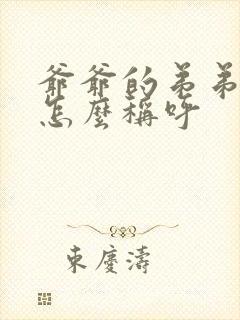 爺爺的弟弟
怎麼稱呼
東慶濤